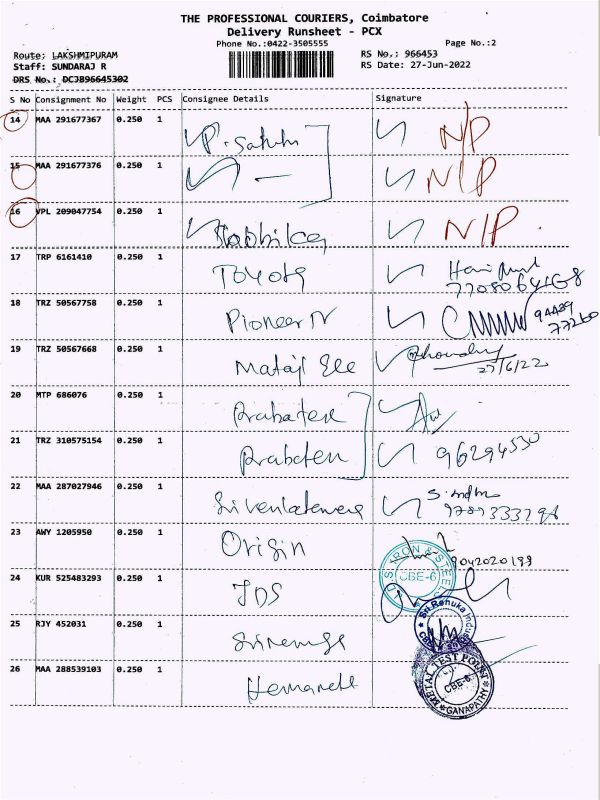 THE PROFESSIONAL COURIERS, Coimbatore
Delivery Runsheet - PCX
Phone No.:0422-3505555 Page No.:2
Route: LAKSHMIPURAM RS No.: 966453
Staff: SUNDARAJ R RS Date: 27-Jun-2022
DRS No.: DCJB96645302
S No Consignment No Weight PCS Consignee Details Signature
14 MAA 291677367 0.250 1 N/P
15 MAA 291677376 0.250 1 N/P
16 VPL 209047754 0.250 1 N/P
17 TRP 6161410 0.250 1 Toyota
18 TRZ 50567758 0.250 1 Pioneer
19 TRZ 50567668 0.250 1 Mataji Ele Chowdry
27/6/22
20 MTP 686076 0.250 1
21 TRZ 310575154 0.250 1 96294530
22 MAA 287027946 0.250 1
23 AWY 1205950 0.250 1 Origin
9042020199
24 KUR 525483293 0.250 1 JDS
IRON & STEELS CBE-6
25 RJY 452031 0.250 1
Sri Renuka
26 MAA 288539103 0.250 1
METAL TEST POINT CBE-6 GANAPATHY